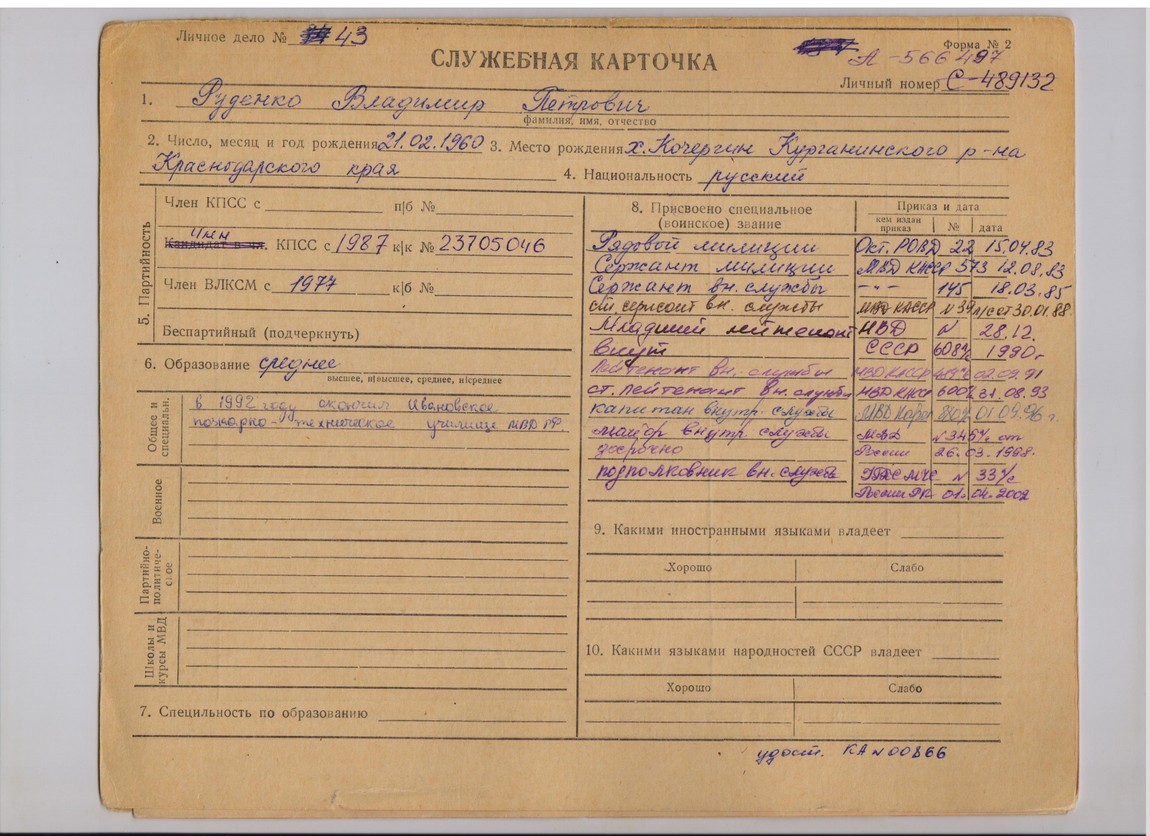 Личное дело № 43
Форма № 2
А-566497
СЛУЖЕБНАЯ КАРТОЧКА
Личный номер С-489132
1. Руденко Владимир Петрович
фамилия, имя, отчество
2. Число, месяц и год рождения 21.02.1960 3. Место рождения х. Кочергин Курганинского р-на
Краснодарского края 4. Национальность русский
5. Партийность
Член КПСС с п|б №
Член
Кандидат в чл. КПСС с 1987 к|к № 23705046
Член ВЛКСМ с 1977 к|б №
Беспартийный (подчеркнуть)
6. Образование среднее
высшее, н|высшее, среднее, н|среднее
Общее и специальн.
в 1992 году окончил Ивановское
пожарно-техническое училище МВД РФ.
Военное
Партийно-политическое
Школы и курсы МВД
7. Специльность по образованию
8. Присвоено специальное (воинское) звание
Приказ и дата
кем издан приказ № дата
Рядовой милиции Окт. РОВД 22 15.04.83
Сержант милиции МВД КАССР 573 12.08.83
Сержант вн. службы -"- 145 18.03.85
ст. сержант вн. службы МВД КАССР N 39 л/с от 30.01.88.
Младший лейтенант МВД N 28.12.
внут СССР 608 1990г
Лейтенант вн. службы МВД КАССР 02.09.91
ст. лейтенант вн. службы МВД КАССР 600 31.08.93
капитан внутр. службы МВД 01.09.96 г.
майор внутр. службы МВД N 345 от
досрочно России 26.03.1998.
подполковник вн. службы ГПС МЧС N 33 л/с
России РК 01.04.2002
9. Какими иностранными языками владеет
Хорошо Слабо
10. Какими языками народностей СССР владеет
Хорошо Слабо
удост. КА N 00866